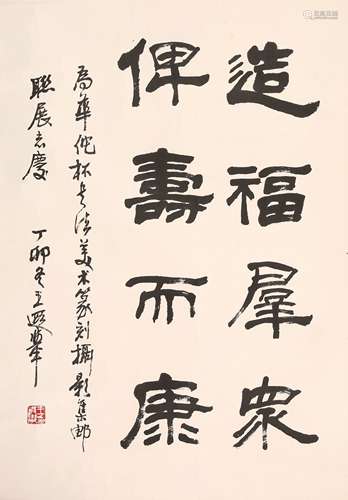 造福群眾
俾壽而康
為華佗杯書法美术篆刻攝影集郵
聯展志慶
丁卯冬王遐舉